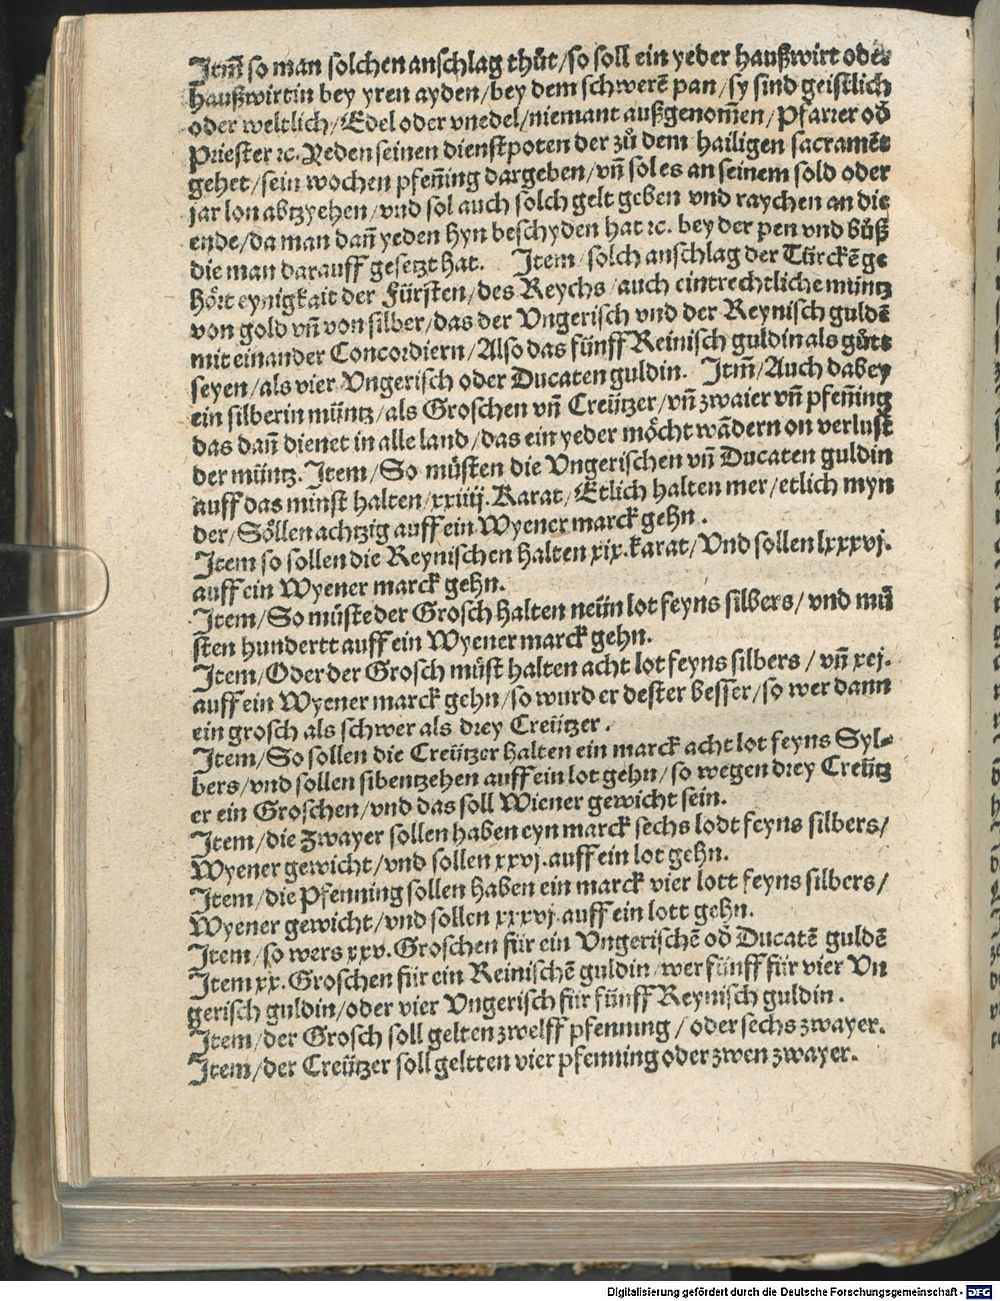 Itm̄ so man sölchen anschlag thůt/so soll ein yeder haußwirt oder
haußwirtin bey yren ayden/bey dem schwerē pan/sy sind geistlich
oder weltlich/Edel oder vnedel/niemant außgenom̄en/Pfarrer od̄
Priester ꝛc. Yeden seinen dienstpoten der zů dem hailigen sacramēt
gehet/sein wochen pfen̄ing dargeben/vn̄ sol es an seinem sold oder
jar lon abtzyehen/vnd sol auch solch gelt geben vnd raychen an die
ende/da man dan̄ yeden hyn beschyden hat ꝛc. bey der pen vnd bůß
die man darauff gesetzt hat. Item/solch anschlag der Türckē ge
hört eynigkait der Fürsten/des Reychs/auch eintrechtliche müntz
von gold vn̄ von silber/das der Vngerisch vnd der Reynisch guldē
mit einander Concordiern/Also das fünff Reinisch guldin als gůtt
seyen/als vier Vngerisch oder Ducaten guldin. Itm̄/Auch dabey
ein silberin müntz/als Groschen vn̄ Creützer/vn̄ zwaier vn̄ pfen̄ing
das dan̄ dienet in alle land/das ein yeder möcht wādern on verlust
der müntz. Item/So müsten die Vngerischen vn̄ Ducaten guldin
auff das minst halten/xxiiij. Karat/Etlich halten mer/etlich myn
der/Söllen achtzig auff ein Wyener marck gehn.
Item so sollen die Reynischen halten xix. karat/Vnd sollen lxxxvj.
auff ein Wyener marck gehn.
Item/So müste der Grosch halten neün lot feyns silbers/vnd mü
sten hundertt auff ein Wyener marck gehn.
Item/Oder der Grosch müst halten acht lot feyns silbers/vn̄ xcj.
auff ein Wyener marck gehn/so wurd er dester besser/so wer dann
ein grosch als schwer als drey Creützer.
Item/So sollen die Creützer halten ein marck acht lot feyns Syl⸗
bers/vnd sollen sibentzehen auff ein lot gehn/so wegen drey Creütz
er ein Groschen/vnd das soll Wiener gewicht sein.
Item/die Zwayer sollen haben eyn marck sechs lodt feyns silbers/
Wyener gewicht/vnd sollen xxvj. auff ein lot gehn.
Item/die Pfenning sollen haben ein marck vier lott feyns silbers/
Wyener gewicht/vnd sollen xxxvj. auff ein lott gehn.
Item/so wers xxv. Groschen für ein Vngerischē od̄ Ducatē guldē
Item xx. Groschen für ein Reinischē guldin/wer fünff für vier Vn
gerisch guldin/oder vier Vngerisch für fünff Reynisch guldin.
Item/der Grosch soll gelten zwelff pfenning/oder sechs zwayer.
Item/der Creützer soll geltten vier pfenning oder zwen zwayer.
Digitalisierung gefördert durch die Deutsche Forschungsgemeinschaft - DFG